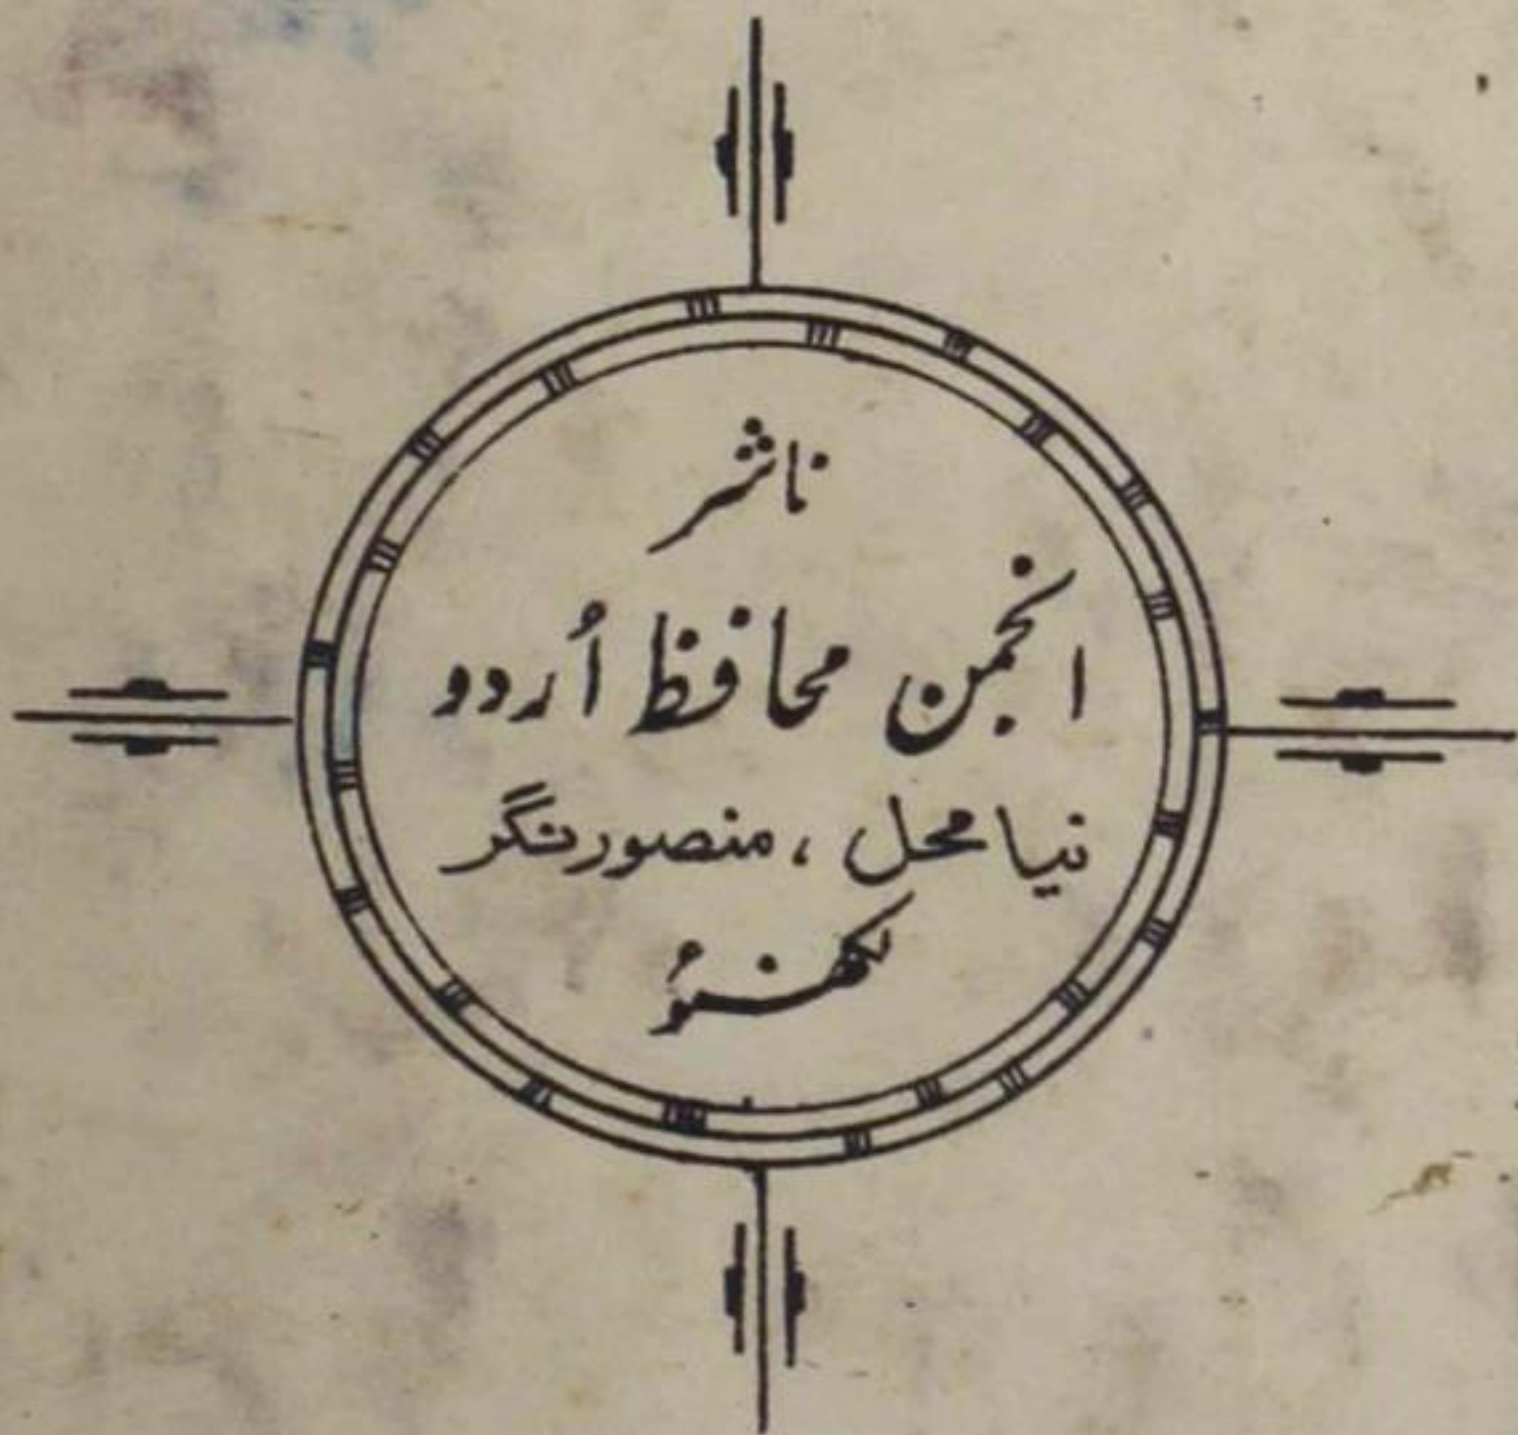 ناشر
انجمن محافظ اُردو
نیا محل ، منصور نگر
لکھنؤ